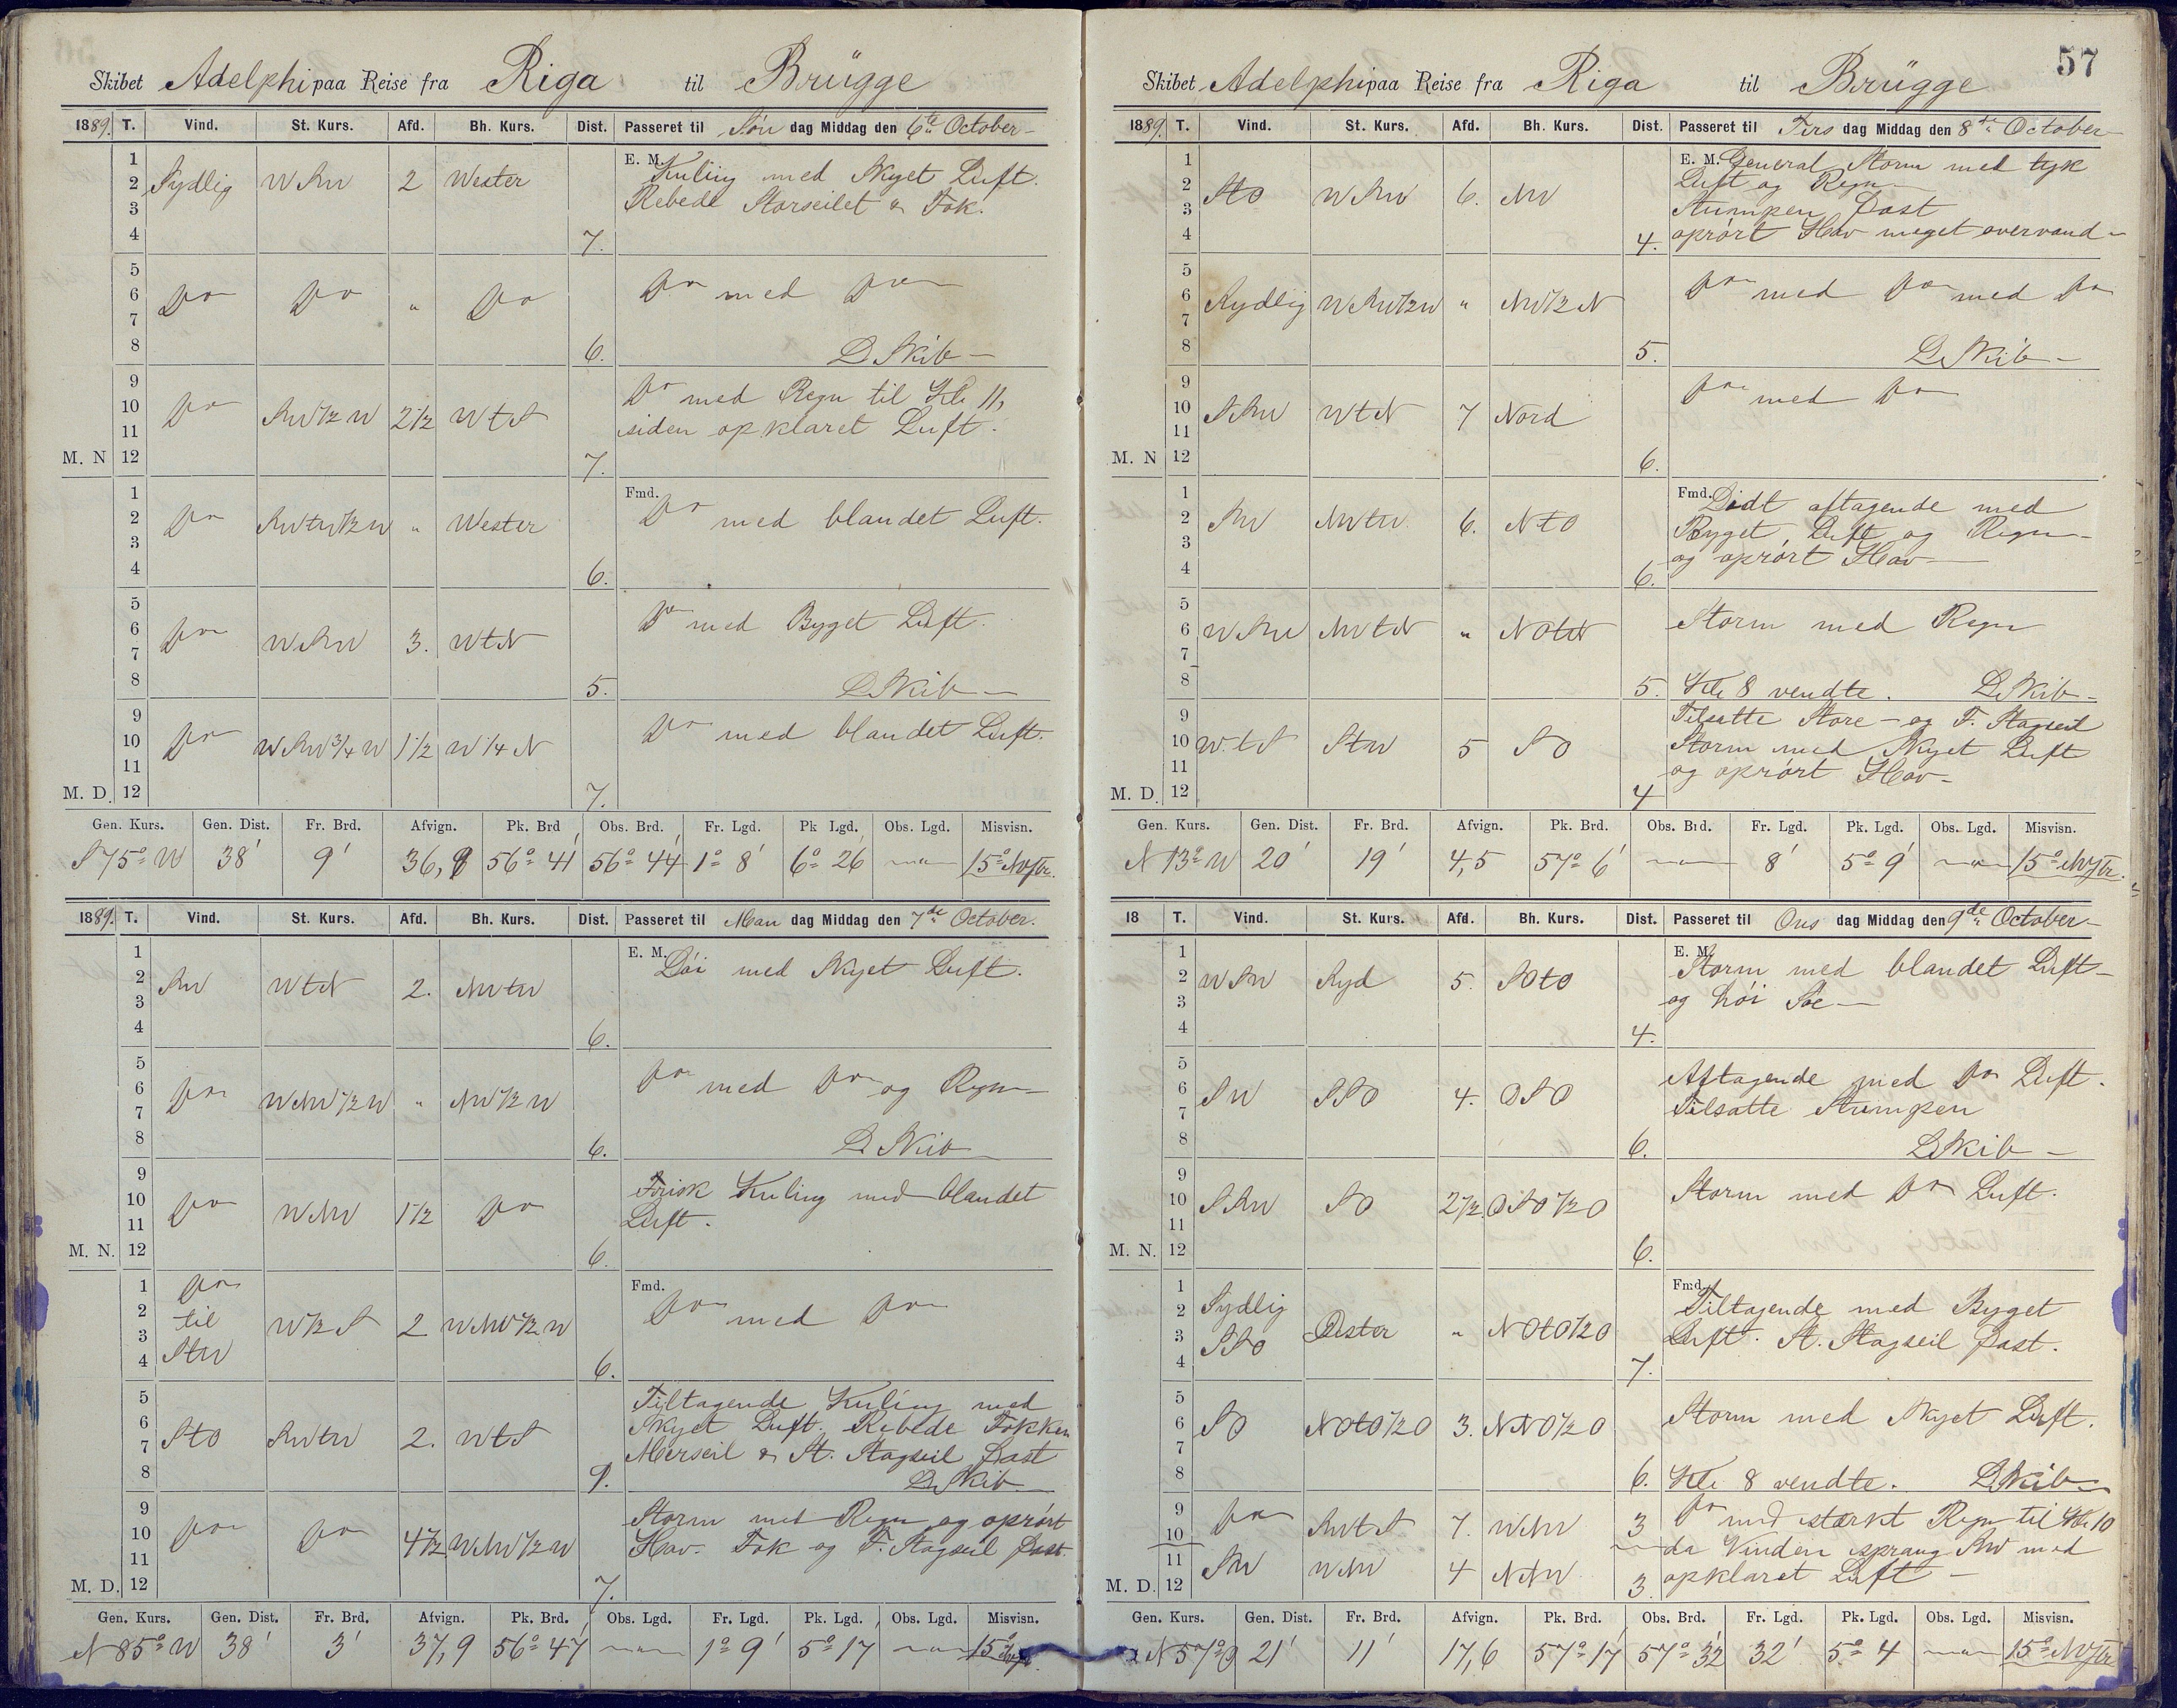 Skibet Adelphi paa Reise fra Riga til Brügge
1889. T. Vind. St. Kurs. Afd. Bh. Kurs. Dist. Passeret til Søn dag Middag den 6te October
1 E. M. Kuling med Skyet Luft.
2 Sydlig WSW 2 Wester Rebede Storseilet & Fok.
3
4 7.
5
6 Do Do " Do Do med Do
7
8 6. L Skib
9 Do med Regn til Kl. 11,
10 Do SW½W 2½ WtS siden opklaret Luft.
11
M. N 12 7.
1 Fmd.
2 Do SWtW½W " Wester Do med blandet Luft.
3
4 6.
5
6 Do WSW 3. WtN Do med Byget Luft.
7
8 5. L Skib
9
10 Do WSW¾W 1½ W¼N Do med blandet Luft.
11
M. D. 12 7.
Gen. Kurs. Gen. Dist. Fr. Brd. Afvign. Pk. Brd Obs. Brd. Fr. Lgd. Pk Lgd. Obs. Lgd. Misvisn.
S 75° W 38' 9' 36,8 56° 41' 56° 44' 1° 8' 6° 26 15° NVstr.
1889. T. Vind. St. Kurs. Afd. Bh. Kurs. Dist. Passeret til Man dag Middag den 7de October.
1 E. M. Løi med Skyet Luft.
2 SW WtN 2. NWtW
3
4 6.
5
6 Do WNW½W " NW½W Do med Do og Regn
7
8 6. L Skib
9 Frisk Kuling med blandet
10 Do WNW 1½ Do Luft.
11
M. N. 12 6.
1 Do Fmd.
2 til W½S 2 WNW½W Do med Do
3
4 StW 6.
5 Tiltagende Kuling med
6 StO SWtW 2. WtS Skyet Luft. Rebede Fokken
7 Merseil & St. Stagseil fast
8 9. L Skib
9 Storm med Regn og oprørt
10 Do Do 4½ WNW½W Hav. Fok og F. Stagseil fast.
11
M. D. 12 7.
Gen. Kurs. Gen. Dist. Fr. Brd. Afvign. Pk. Brd. Obs. Lgd. Fr. Lgd. Pk. Lgd. Obs. Lgd. Misvisn.
N 85° W 38' 3' 37,9 56° 47' 1° 9' 5° 17 15°
57
Skibet Adelphi paa Reise fra Riga til Brügge
1889. T. Vind. St. Kurs. Afd. Bh. Kurs. Dist. Passeret til Tirs dag Middag den 8de October
1 E. M. General Storm med tyk
2 StO WSW 6. NW Luft og Regn
3 Stumpen fast
4 4. oprørt Hav meget overvand
5
6 Sydlig WSW½W " NW½N Do med Do med Do
7
8 5. L Skib
9
10 SSW WtN 7 Nord Do med Do
11
M. N 12 6.
1 Fmd. Lidt aftagende med
2 SW NWtW 6. NtO Byget Luft og Regn
3 og oprørt Hav
4 6.
5
6 WSW NWtN " NOtN Storm med Regn
7
8 5. Kl. 8 vendte. L Skib
9 Tilsatte Store- og F. Stagseil
10 WtS StW 5 SO Storm med Skyet Luft
11 og oprørt Hav
M. D. 12 4
Gen. Kurs. Gen. Dist. Fr. Brd. Afvign. Pk. Brd. Obs. Brd. Fr. Lgd. Pk. Lgd. Obs. Lgd. Misvisn.
N 13° W 20' 19' 4,5 57° 6' 8' 5° 9' 15° NVstr.
18 T. Vind. St. Kurs. Afd. Bh. Kurs. Dist. Passeret til Ons dag Middag den 9de October
1 E. M. Storm med blandet Luft
2 WSW Syd 5. SOtO og høi Søe
3
4 4.
5
6 SW SSO 4. OSO Aftagende med Do Luft.
7 Tilsatte Stumpen
8 6. L Skib
9
10 SSW SO 2½ OSO½O Storm med Do Luft.
11
M. N. 12 6.
1 Fmd.
2 Sydlig Tiltagende med Byget
3 SSO Oester " NOtO½O Luft. St. Stagseil fast.
4 7.
5
6 SO NOtO½O 3. NNO½O Storm med Skyet Luft.
7
8 6. Kl. 8 vendte. L Skib
9 Do SWtS 7. WNW 3 Do med stærkt Regn til Kl. 10
10 da Vinden sprang SW med
11 SW WNW 4 NNW opklaret Luft
M. D. 12 3.
Gen. Kurs. Gen. Dist. Fr. Brd. Afvign. Pk. Brd. Obs. Brd. Fr. Lgd. Pk. Lgd. Obs. Lgd. Misvisn.
N 57° O 21' 11' 17,6 57° 17' 57° 32' 32' 5° 4 15° NVstr